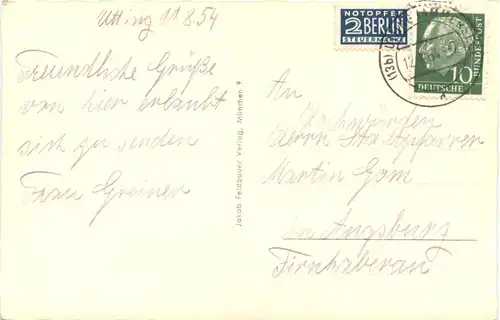 Utting 11.8.54
Freundliche Grüße
von hier erlaubt
sich zu senden
Frau Greiner
Jakob Feldbauer Verlag, München 9
NOTOPFER
2 BERLIN
STEUERMARKE
(13b)
10
DEUTSCHE
BUNDESPOST
An
Hochwürden
Herrn Stadtpfarrer
Martin Gom
in Augsburg
Firnhaberau